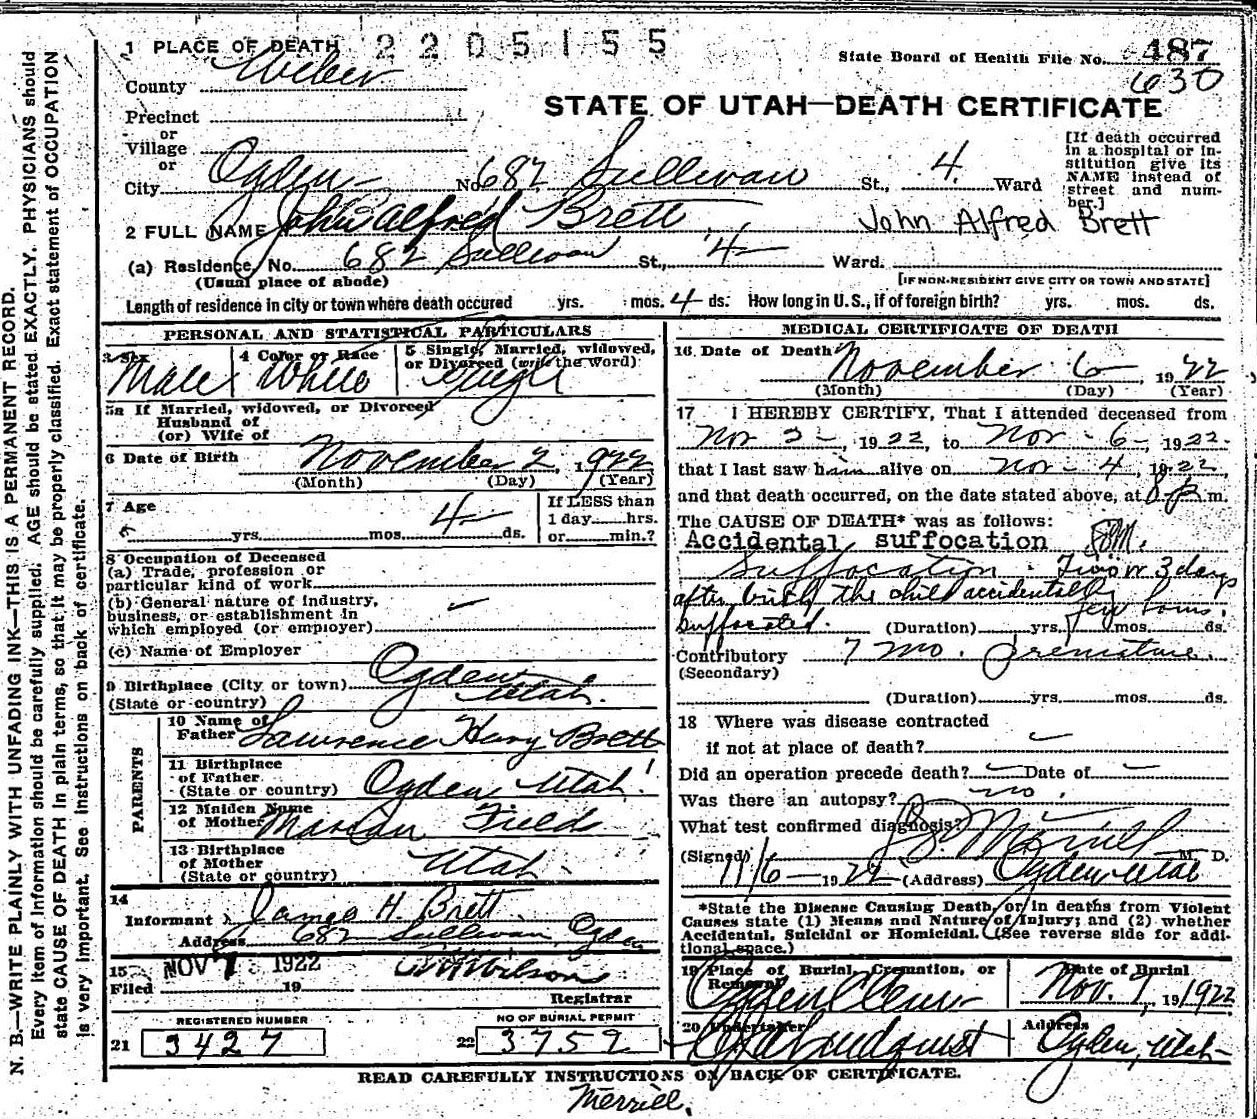 1 PLACE OF DEATH 2205155
State Board of Health File No. 487
County Weber
630
STATE OF UTAH—DEATH CERTIFICATE
Precinct
or
Village
or
City Ogden No. 682 Sullivan St., 4. Ward
[If death occurred
in a hospital or in-
stitution give its
NAME instead of
street and num-
ber.]
2 FULL NAME John Alfred Brett John Alfred Brett
(a) Residence, No. 682 Sullivan St., 4 Ward.
(Usual place of abode)
[IF NON-RESIDENT GIVE CITY OR TOWN AND STATE]
Length of residence in city or town where death occured yrs. mos. 4 ds. How long in U.S., if of foreign birth? yrs. mos. ds.
PERSONAL AND STATISTICAL PARTICULARS
3 Sex
Male
4 Color or Race
White
5 Single, Married, widowed,
or Divorced (write the word)
Single
5a If Married, widowed, or Divorced
Husband of
(or) Wife of
6 Date of Birth November 2, 1922
(Month) (Day) (Year)
7 Age
yrs. mos. 4 ds.
If LESS than
1 day hrs.
or min.?
8 Occupation of Deceased
(a) Trade, profession or
particular kind of work
(b) General nature of industry,
business, or establishment in
which employed (or employer)
(c) Name of Employer
9 Birthplace (City or town) Ogden
(State or country) Utah.
PARENTS
10 Name of
Father Lawrence Henry Brett
11 Birthplace
of Father
(State or country) Ogden Utah!
12 Maiden Name
of Mother Marian Field
13 Birthplace
of Mother
(State or country) Utah
14
Informant James H. Brett
Address 682 Sullivan, Ogden
15 NOV 7 1922
Filed 19
Wilson
Registrar
REGISTERED NUMBER
21 3427
NO OF BURIAL PERMIT
22 3759
MEDICAL CERTIFICATE OF DEATH
16 Date of Death November 6, 1922
(Month) (Day) (Year)
17 I HEREBY CERTIFY, That I attended deceased from
Nov 2, 1922, to Nov - 6, 1922.
that I last saw him alive on Nov - 4, 1922,
and that death occurred, on the date stated above, at 8 p m.
The CAUSE OF DEATH* was as follows:
Accidental suffocation
Suffocation. Two or 3 days
after birth the child accidentally
suffocated. few hours.
(Duration) yrs. mos. ds.
Contributory 7 mo. premature.
(Secondary)
(Duration) yrs. mos. ds.
18 Where was disease contracted
if not at place of death?
Did an operation precede death? Date of
Was there an autopsy? no.
What test confirmed diagnosis?
(Signed) Merrill M. D.
11/6 1922 (Address) Ogden Utah
*State the Disease Causing Death, or in deaths from Violent
Causes state (1) Means and Nature of Injury; and (2) whether
Accidental, Suicidal or Homicidal. (See reverse side for addi-
tional space.)
19 Place of Burial, Cremation, or
Removal
Ogden Cem
Date of Burial
Nov. 7, 1922
20 Undertaker
Lindquist
Address
Ogden, Utah
READ CAREFULLY INSTRUCTIONS ON BACK OF CERTIFICATE.
Merrill.
N. B.—WRITE PLAINLY WITH UNFADING INK—THIS IS A PERMANENT RECORD.
Every item of information should be carefully supplied. AGE should be stated EXACTLY. PHYSICIANS should
state CAUSE OF DEATH in plain terms, so that it may be properly classified. Exact statement of OCCUPATION
is very important. See instructions on back of certificate.